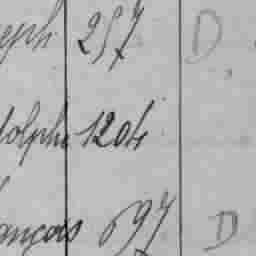 eph 257 D
dolphe 1204
ançois 697 D